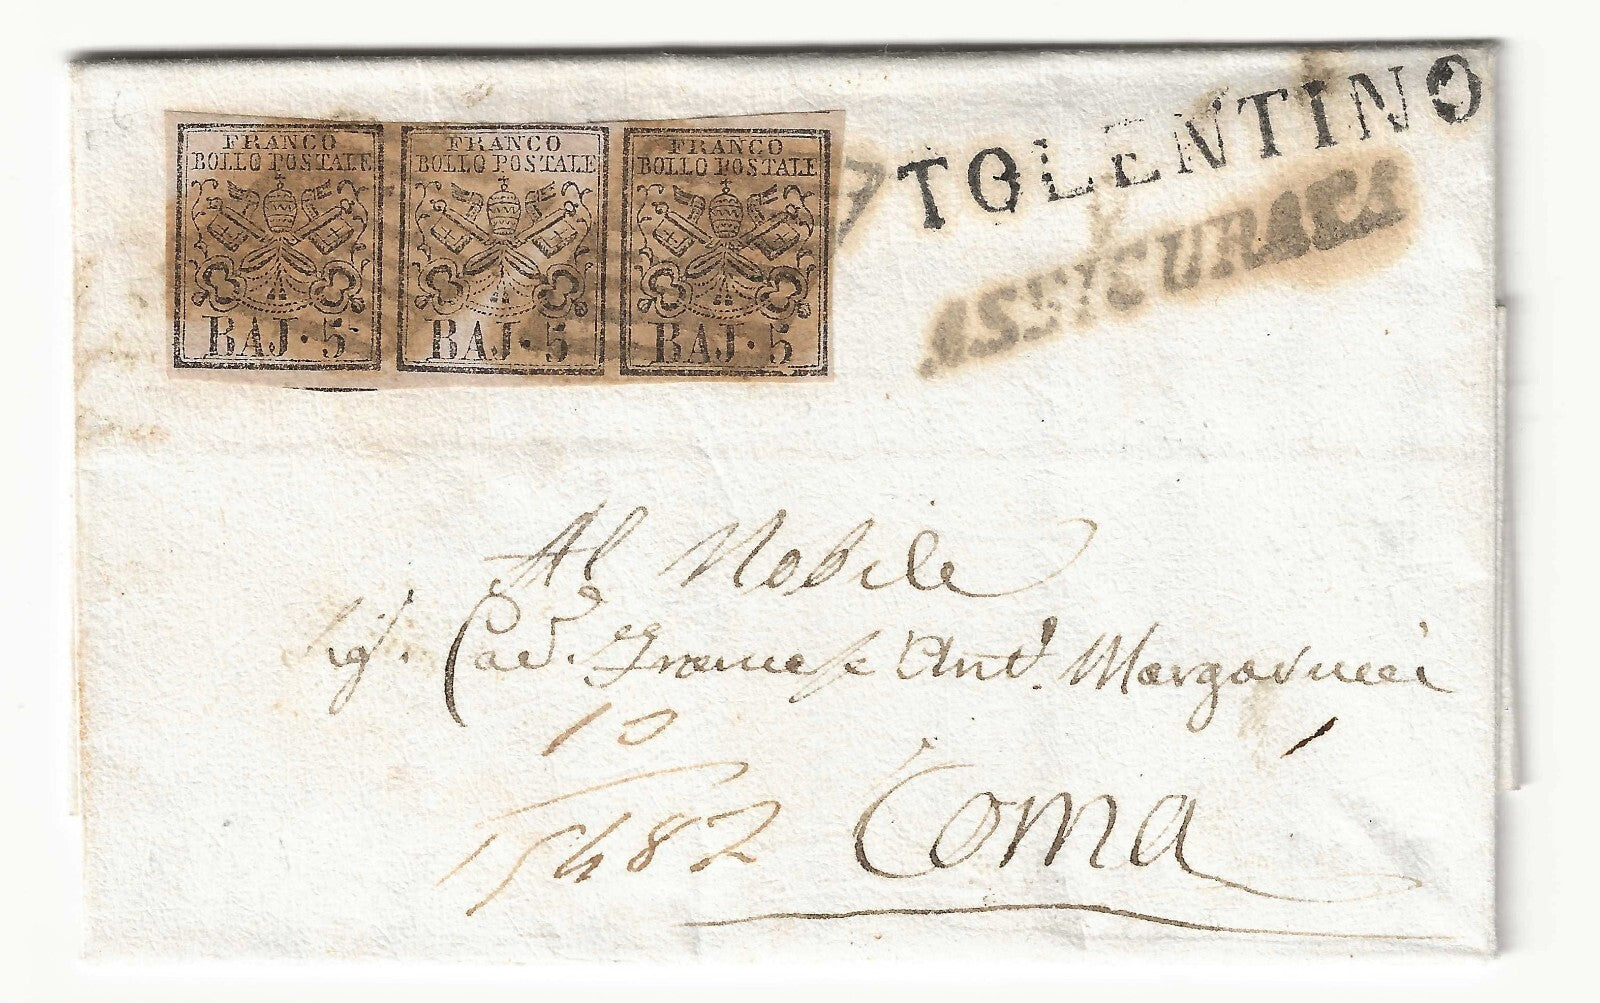 FRANCO
BOLLO POSTALE
BAJ. 5
FRANCO
BOLLO POSTALE
BAJ. 5
FRANCO
BOLLO POSTALE
BAJ. 5
TOLENTINO
ASSICURATA
Al Nobile
Sig. Cav. Francesc Ant. Margarucci
10
15482
Roma